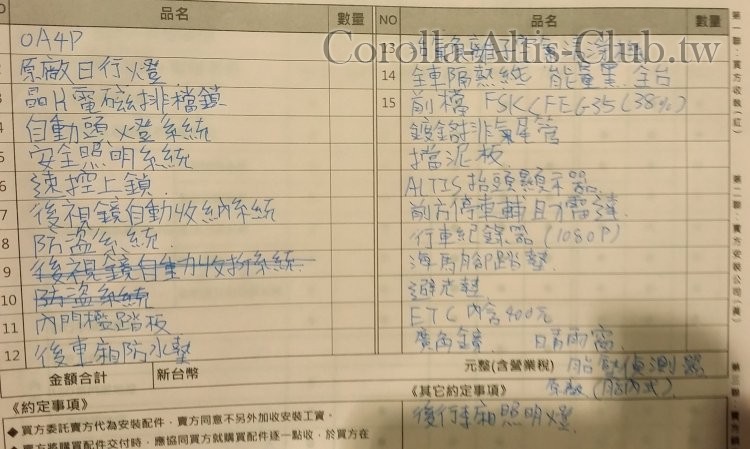 品名 數量
OA4P
原廠日行燈
晶片電磁排檔鎖
自動頭燈系統
5 安全照明系統
6 速控上鎖
7 後視鏡自動收納系統
8 防盜系統
9 後視鏡自動收折系統
10 防盜系統
11 內門檻踏板
12 後車廂防水墊
金額合計 新台幣
NO 品名 數量
Corolla-Altis-Club.tw
13
14 全車隔熱紙 能量黑 全台
15 前檔 FSK FEG35 (38%)
鍍鉻排氣尾管
擋泥板
ALTIS抬頭顯示器
前方停車輔助雷達
行車紀錄器 (1080P)
海馬腳踏墊
避光墊
ETC 內含400元
廣角鏡 日晴雨窗
元整(含營業稅) 胎壓偵測器
原廠 (胎內式)
《約定事項》
◆買方委託賣方代為安裝配件，賣方同意不另外加收安裝工資。
◆賣方將購買配件交付時，應協同買方就購買配件逐一點收，於買方在
《其它約定事項》
後行李廂照明燈
第一聯：賣方收執(紅)
第二聯：賣方安裝公司(黃)